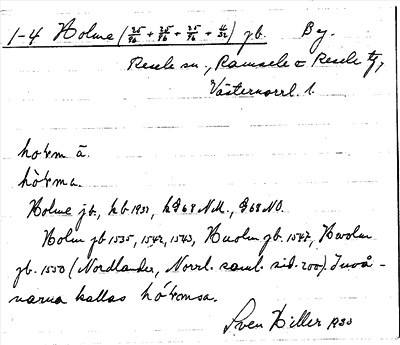 1-4 Holme (25/96 + 25/96 + 25/96 + 11/32) gb. By.
Resele sn., Ramsele o Resele tg,
Västernorrl. l.
ho⁴m ā.
hò⁴ma.
Holme jb., kb 1931, hD 68 NV., D 68 NO.
Holm gb 1535, 1542, 1543, Huolm gb. 1547, Hwolm
gb. 1550 (Nordlander, Norrl. saml. sid. 200). Invå-
narna kallas
Sven Hiller 1930